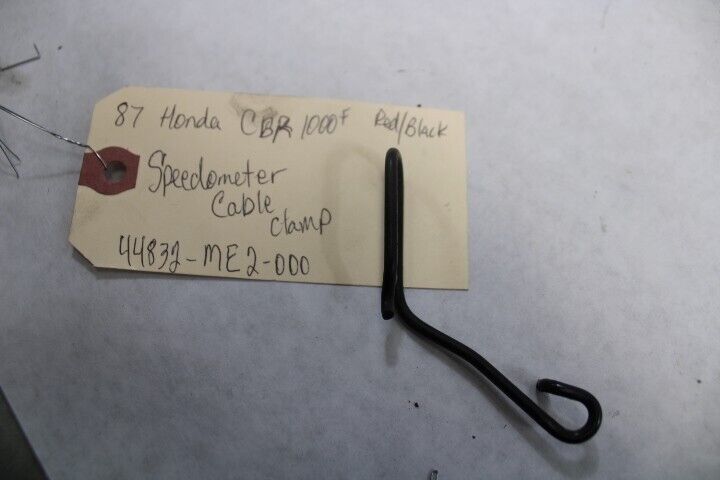 87 Honda CBR 1000F Red/Black
Speedometer
Cable
Clamp
44832-ME2-000